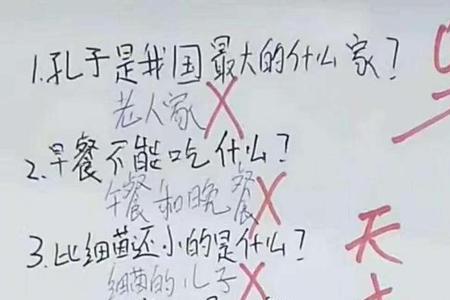 1.孔子是我国最大的什么家?
老人家
2.早餐不能吃什么?
午餐和晚餐
3.比细菌还小的是什么?
细菌的儿子
天